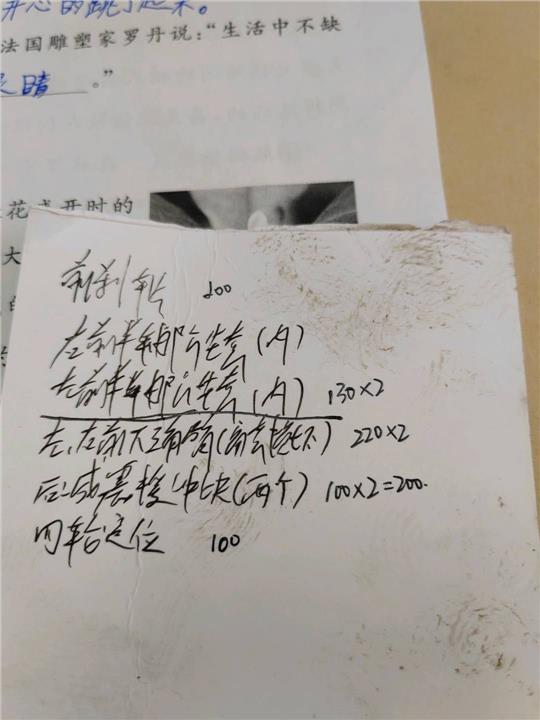 开心的跳了起来。
法国雕塑家罗丹说:“生活中不缺
眼睛。”
花盛开时的
大
的
前刹车片 200
左前半轴防尘套(内)
右前半轴防尘套(内) 130×2
左、右前下三角臂(胶套烧坏) 220×2
后减震缓冲块(两个) 100×2=200.
四轮定位 100